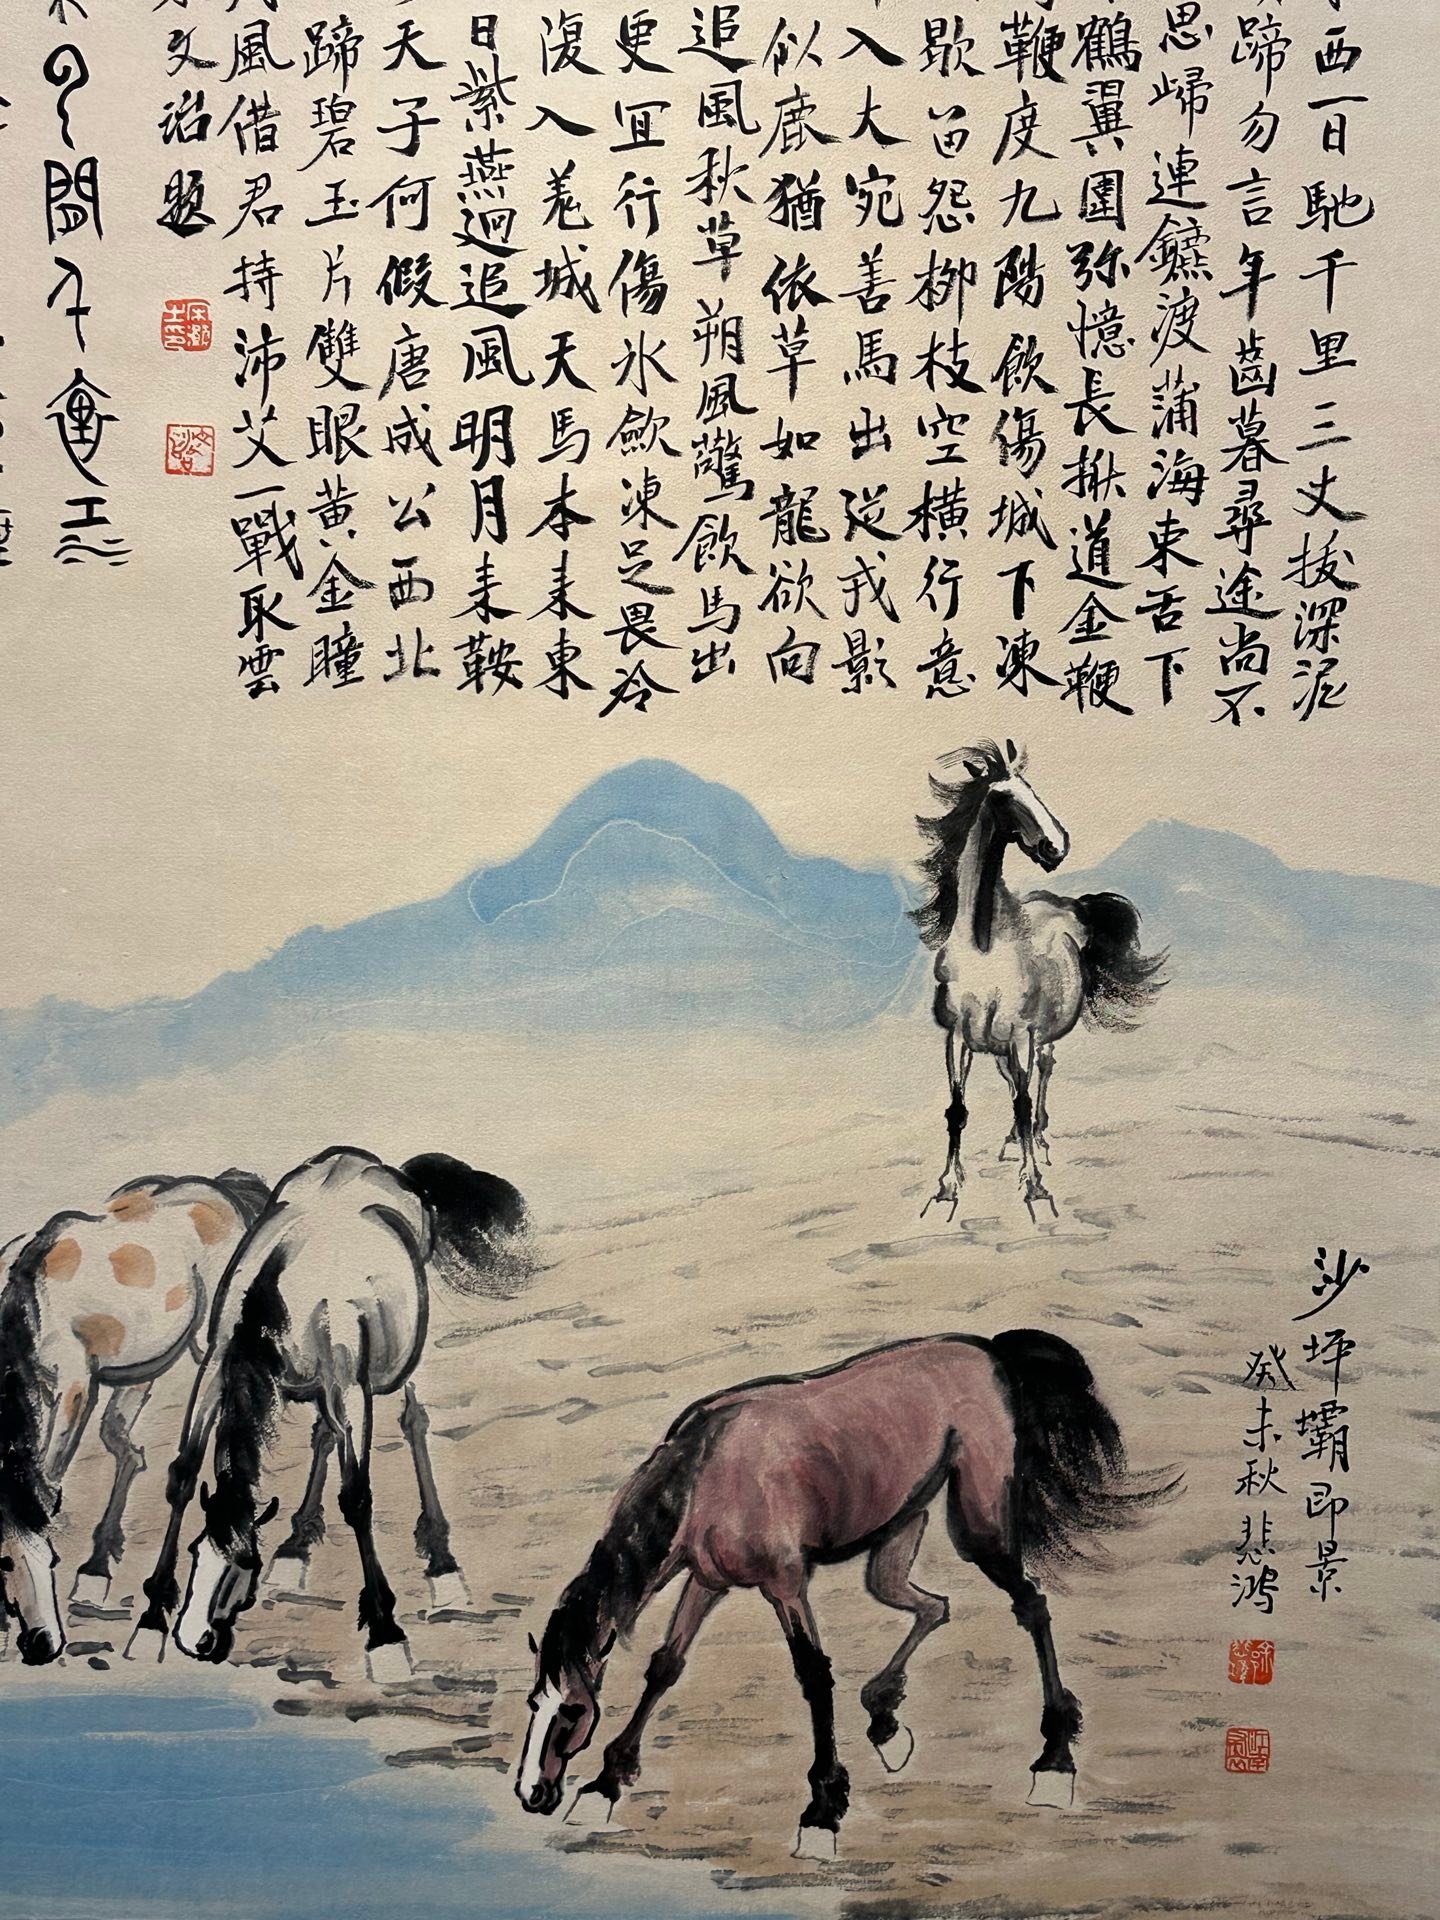 西一日馳千里三丈拔深泥
蹄勿言年齒暮尋途尚不
思歸連鑣渡蒲海束舌下
鶴翼圍弥憶長楸道金鞭
鞭度九陽飲傷城下凍
歇留怨柳枝空横行意
入大宛善馬出從戎影
似鹿猶依草如龍欲向
追風秋草朔風驚飲馬出
更宜行傷水歛凍足畏冷
復入羌城天馬本来東
日紫燕迴追風明月来鞍
天子何假唐成公西北
蹄碧玉片雙眼黄金瞳
風借君持沛艾一戰取雲
文治題
沙坪壩即景
癸未秋悲鴻